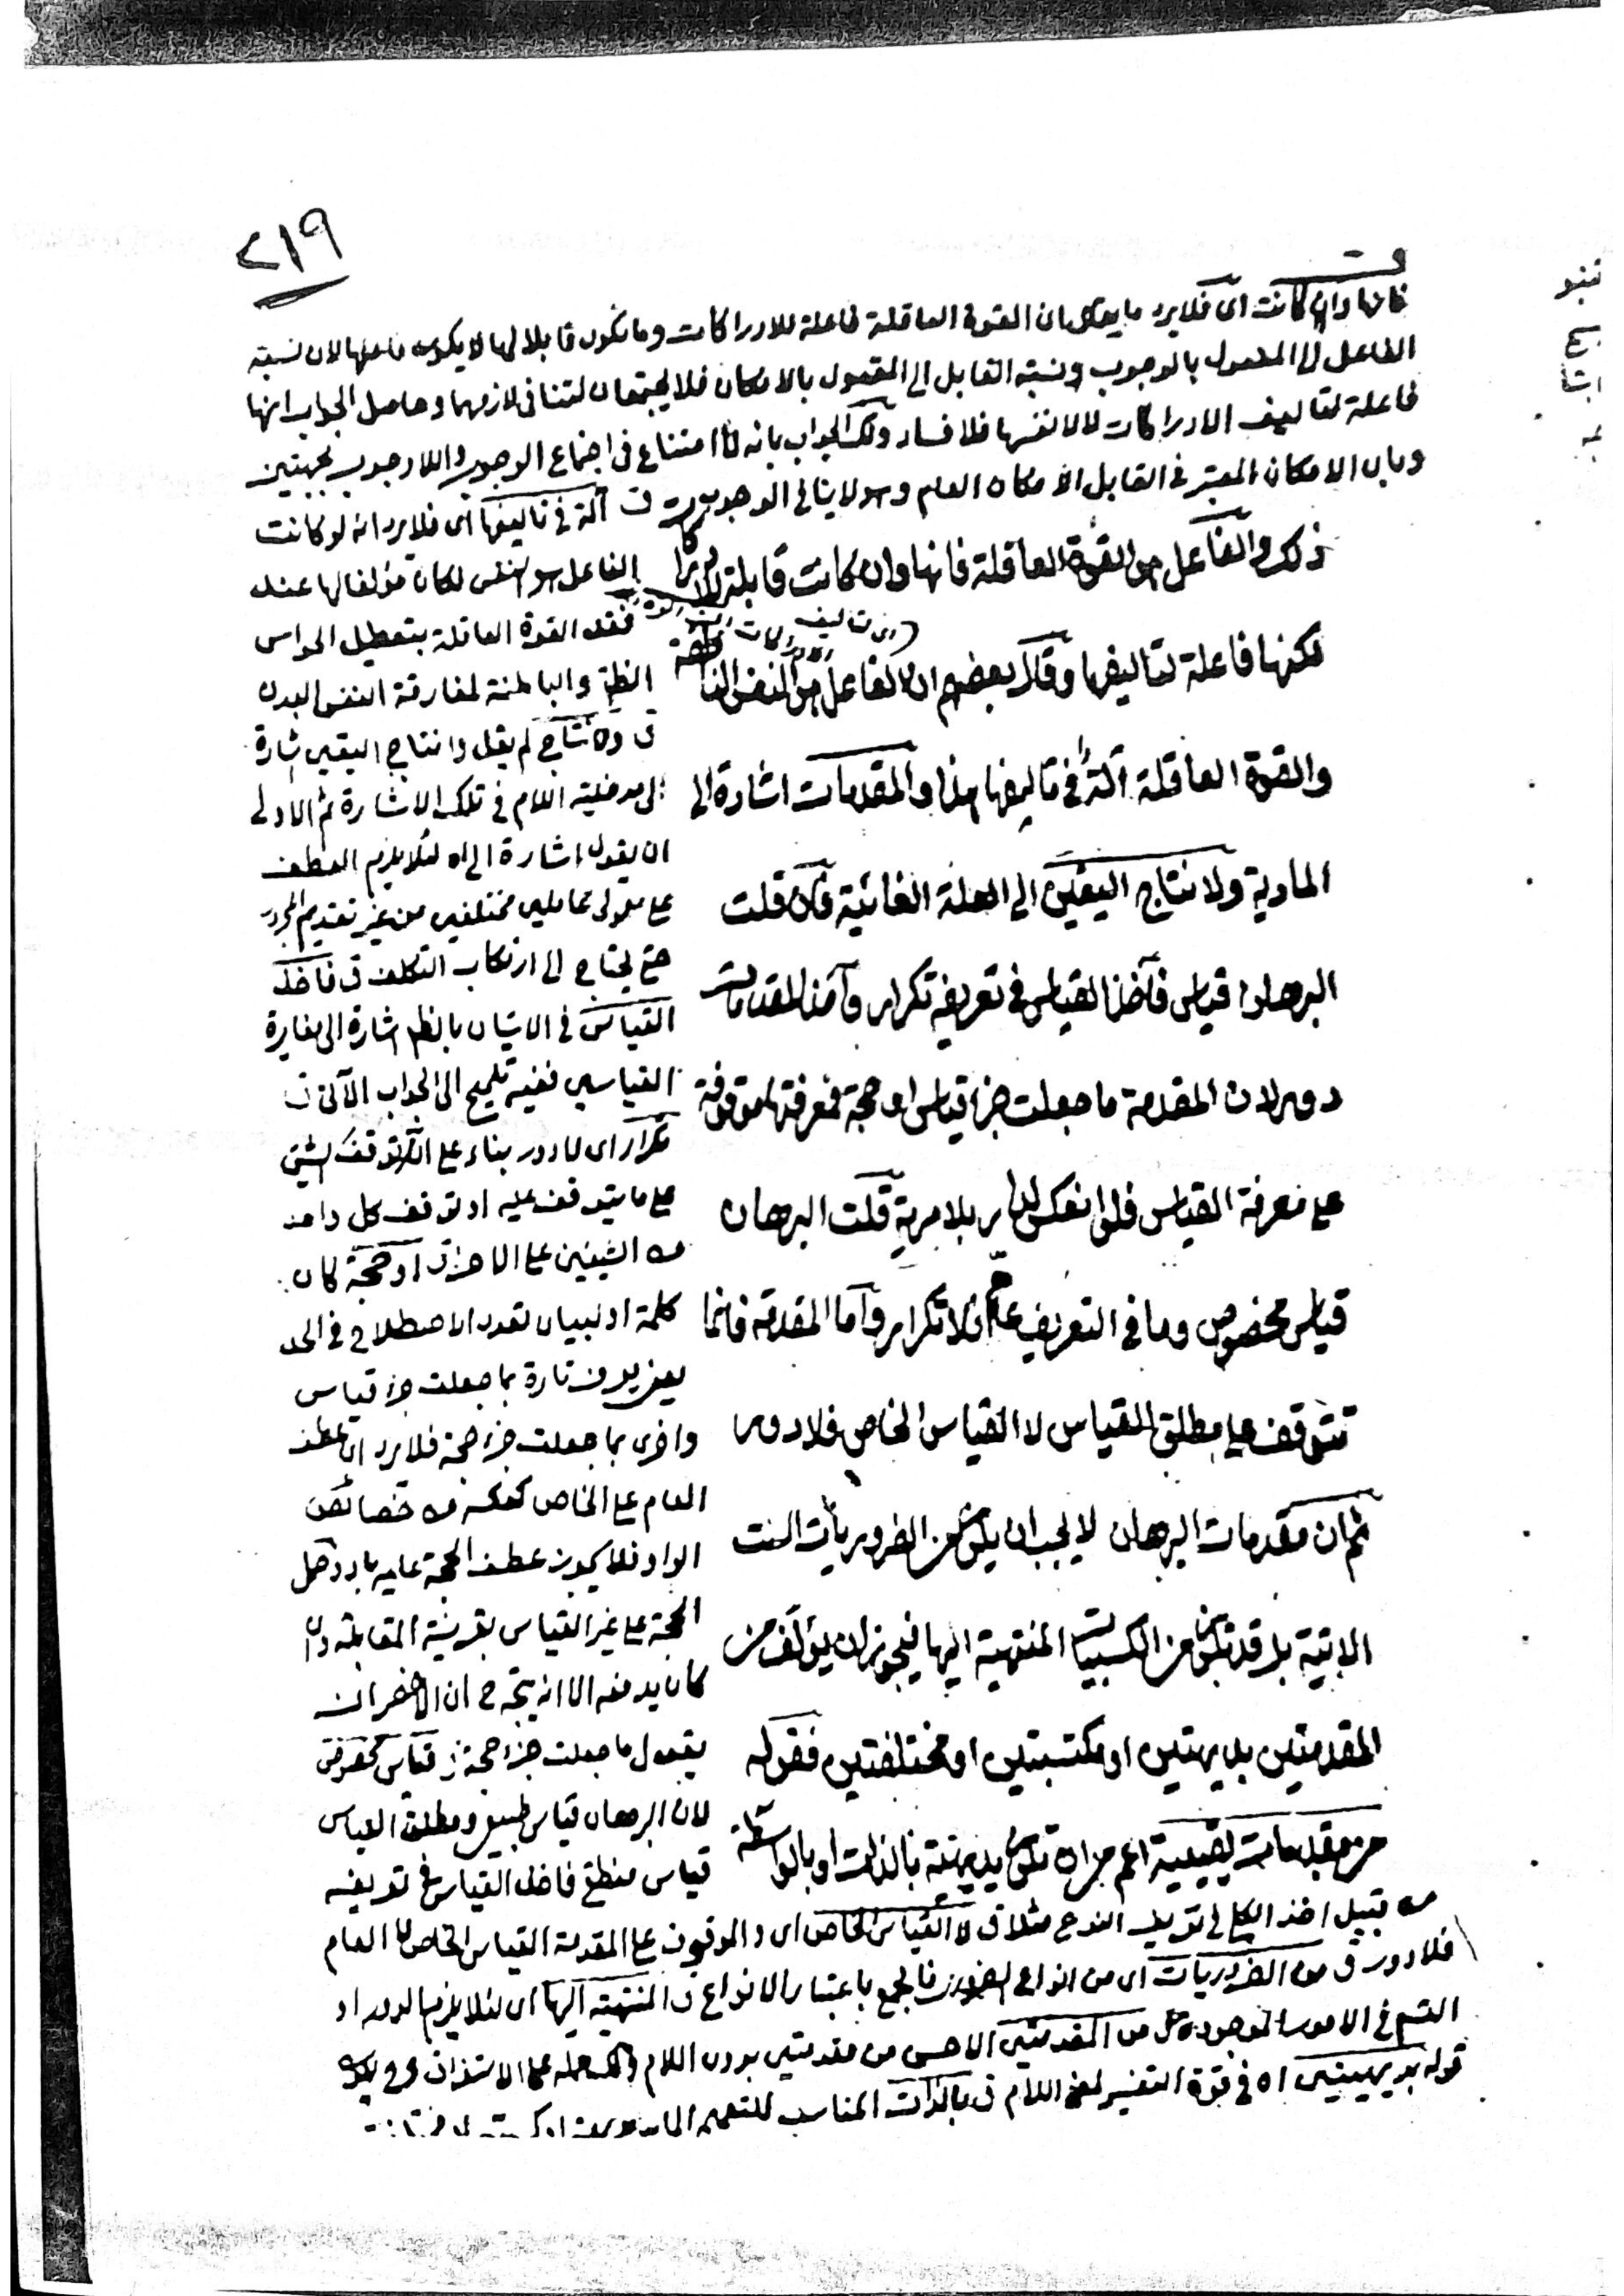 ٢١٩
ق
فانها وان كانت اى فلا يرد ما يقال ان القوة العاقلة فاعلة للادراكات وما تكون قابلا لها لا يكون فاعلها لان نسبة
الفاعل الى المفعول بالوجوب ونسبة القابل الى المقبول بالامكان فلا يجتمعان لتنافى لازمهما وحاصل الجواب انها
فاعلة لتاليف الادراكات لا لانفسها فلا فساد ولك الجواب بانه لا امتناع فى اجتماع الوجوب واللاوجوب بجهتين
وبان الامكان المعتبر فى القابل الامكان العام وهو لا ينافى الوجوب
ذلك والفاعل هو القوة العاقلة فانها وان كانت قابلة للادراكات
لكنها فاعلة لتاليفها وقال بعضهم ان الفاعل هو النفس الناطقة
والقوة العاقلة آلة فى تاليفها هذا والمقدمات اشارة الى
المادية ولانتاج اليقين الى العلة الغائية فان قلت
البرهان قياس فاخذ القياس فى تعريفه تكرار واخذ المقدمات
دور لان المقدمة ما جعلت جزء قياس او حجة فمعرفتها موقوفة
على معرفة القياس فلو انعكس لدار بلا مرية قلت البرهان
قياس مخصوص وما فى التعريف عام فلا تكرار واما المقدمة فانما
تتوقف على مطلق القياس لا القياس الخاص فلا دور
ثم ان مقدمات البرهان لا يجب ان يكون من الضروريات الست
الاتية بل قد تكون من الكسبيات المنتهية اليها فيجوز ان يؤلف من
المقدمتين بديهتين او مكتسبتين او مختلفتين فقوله
من مقدمات يقينية اعم من ان تكون بديهية بالذات او بالواسطة
ق آلة فى تاليفها اى فلا يرد انه لو كانت
الفاعل هو النفس لكان مؤلفا لها عند
فقد القوة العاقلة بتعطيل الحواس
الظاهرة والباطنة لمفارقة النفس البدن
ق ولانتاج لم يقل وانتاج اليقين اشارة
الى مدخلية اللام فى تلك الاشارة ثم الاولى
ان يقول اشارة الى اه لئلا يلزم العطف
على معمولى عاملين مختلفين من غير تقديم المجرور
حتى يحتاج الى ارتكاب التكلف ق فاخذ
القياس فى الاتيان بالظاهر اشارة الى مغايرة
القياسين ففيه تلميح الى الجواب الآتى ق
تكرار اى لا دور بناء على انه توقف الشئ
على ما يتوقف عليه او توقف كل واحد
من الشيئين على الاخر ق او حجة كان
كلمة او لبيان تعدد الاصطلاح فى الحد
يعنى يعرف تارة بما جعلت جزء قياس
واخرى بما جعلت جزء حجة فلا يرد ان عطف
العام على الخاص كعكسه من خصائص
الواو فلا يجوز عطف الحجة عليه باو وحمل
الحجة على غير القياس بقرينة المقابلة وان
كان يدفعه الا انه يتجه ح ان الاخصر ان
يقول ما جعلت جزء حجة ق قياس مخصوص
لان البرهان قياس طبيعى ومطلق القياس
قياس منطقى فاخذ القياس فى تعريفه
من قبيل اخذ الكلى فى تعريف النوع مثلا ق لا القياس الخاص اى والموقوف على المقدمة القياس الخاص لا العام
فلا دور ق من الضروريات اى من انواع الضروريات فالجمع باعتبار الانواع ق المنتهية اليها اى لئلا يلزم الدور او
التسلسل فى الامور الموجودة ق من المقدمتين الاحسن من مقدمتين بدون اللام ولك حمله على الاستغراق وح يكون
قوله بديهيتين اه فى قوة التفسير لمعنى اللام ق بالذات المناسب للتعميم